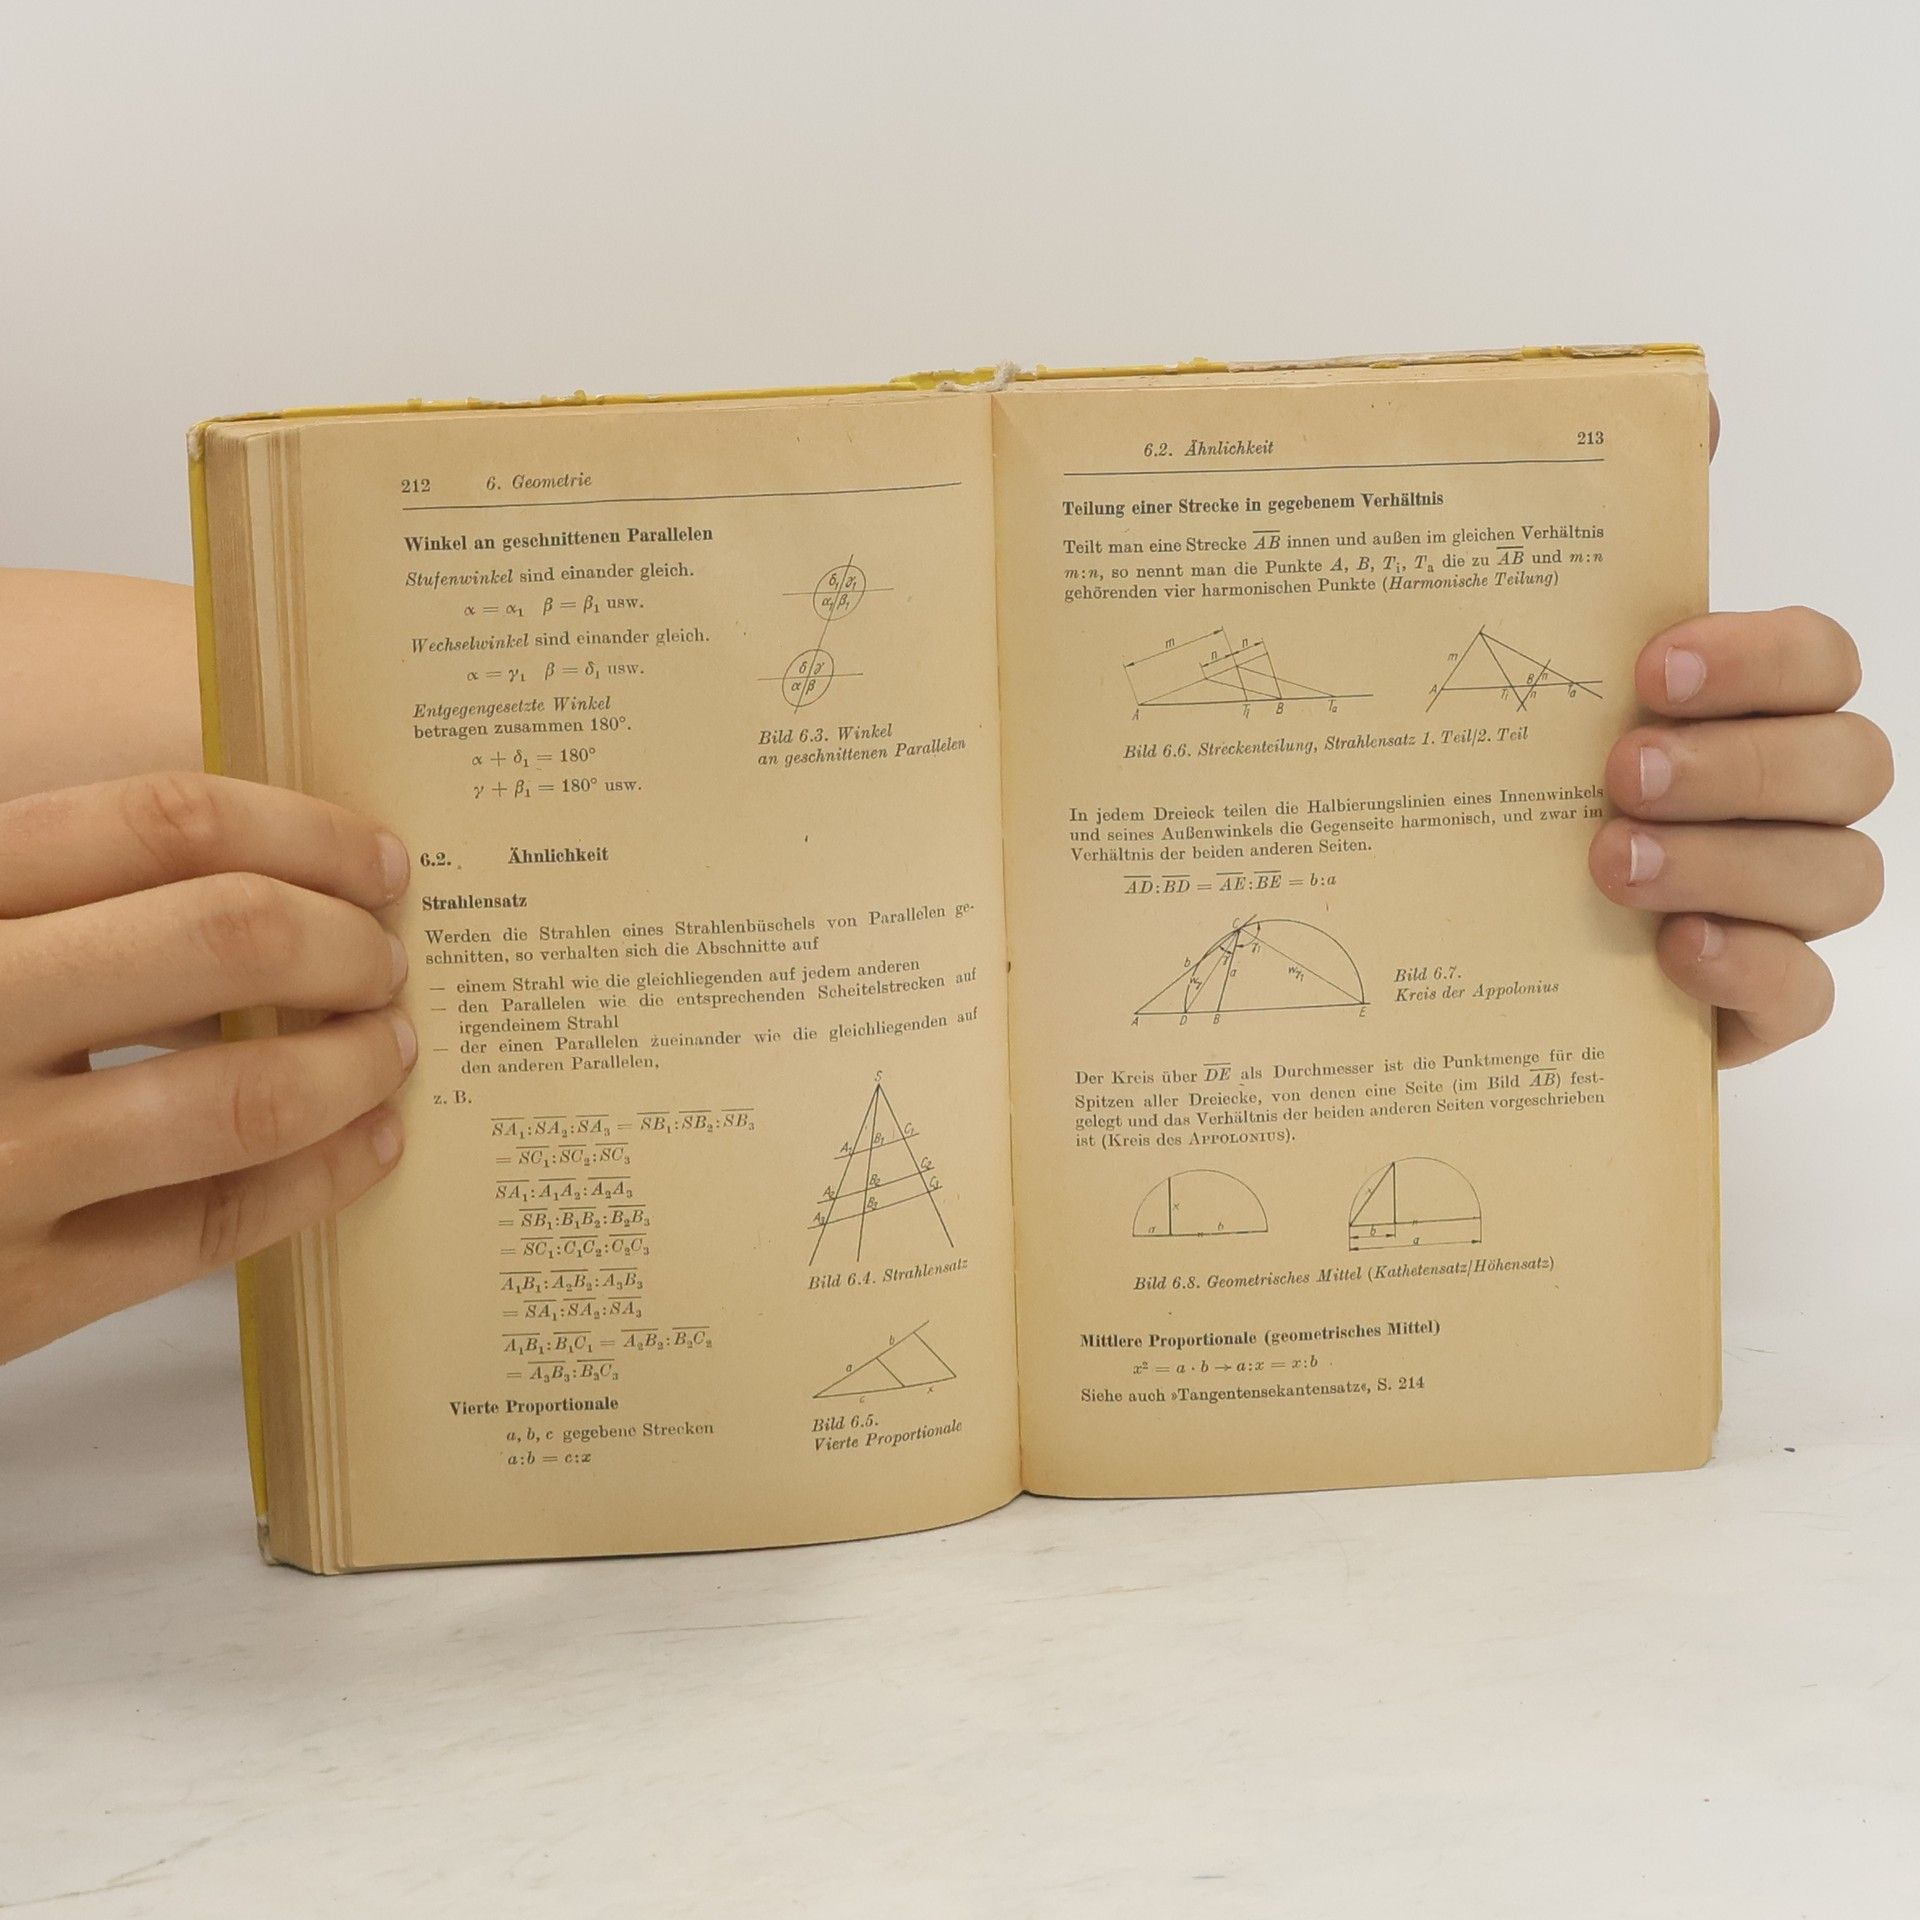 212 6. Geometrie
Winkel an geschnittenen Parallelen
Stufenwinkel sind einander gleich.
α = α₁ β = β₁ usw.
Wechselwinkel sind einander gleich.
α = γ₁ β = δ₁ usw.
Entgegengesetzte Winkel
betragen zusammen 180°.
α + δ₁ = 180°
γ + β₁ = 180° usw.
δ₁ γ₁
α₁ β₁
δ γ
α β
Bild 6.3. Winkel
an geschnittenen Parallelen
6.2. Ähnlichkeit
Strahlensatz
Werden die Strahlen eines Strahlenbüschels von Parallelen ge-
schnitten, so verhalten sich die Abschnitte auf
— einem Strahl wie die gleichliegenden auf jedem anderen
— den Parallelen wie die entsprechenden Scheitelstrecken auf
irgendeinem Strahl
— der einen Parallelen zueinander wie die gleichliegenden auf
den anderen Parallelen,
z. B.
S̅A̅₁:S̅A̅₂:S̅A̅₃ = S̅B̅₁:S̅B̅₂:S̅B̅₃
= S̅C̅₁:S̅C̅₂:S̅C̅₃
S̅A̅₁:A̅₁A̅₂:A̅₂A̅₃
= S̅B̅₁:B̅₁B̅₂:B̅₂B̅₃
= S̅C̅₁:C̅₁C̅₂:C̅₂C̅₃
A̅₁B̅₁:A̅₂B̅₂:A̅₃B̅₃
= S̅A̅₁:S̅A̅₂:S̅A̅₃
A̅₁B̅₁:B̅₁C̅₁ = A̅₂B̅₂:B̅₂C̅₂
= A̅₃B̅₃:B̅₃C̅₃
S
A₁ B₁ C₁
A₂ B₂ C₂
A₃ B₃ C₃
Bild 6.4. Strahlensatz
Vierte Proportionale
a, b, c gegebene Strecken
a:b = c:x
a b
c x
Bild 6.5.
Vierte Proportionale
6.2. Ähnlichkeit 213
Teilung einer Strecke in gegebenem Verhältnis
Teilt man eine Strecke A̅B̅ innen und außen im gleichen Verhältnis
m:n, so nennt man die Punkte A, B, Tᵢ, Tₐ die zu A̅B̅ und m:n
gehörenden vier harmonischen Punkte (Harmonische Teilung)
m n n
A Tᵢ B Tₐ
m
A Tᵢ B n n Tₐ
Bild 6.6. Streckenteilung, Strahlensatz 1. Teil/2. Teil
In jedem Dreieck teilen die Halbierungslinien eines Innenwinkels
und seines Außenwinkels die Gegenseite harmonisch, und zwar im
Verhältnis der beiden anderen Seiten.
A̅D̅:B̅D̅ = A̅E̅:B̅E̅ = b:a
C
b γ γ₁
wγ a wγ₁
A D B E
Bild 6.7.
Kreis der Appolonius
Der Kreis über D̅E̅ als Durchmesser ist die Punktmenge für die
Spitzen aller Dreiecke, von denen eine Seite (im Bild A̅B̅) fest-
gelegt und das Verhältnis der beiden anderen Seiten vorgeschrieben
ist (Kreis des APPOLONIUS).
x
a b
x
b
a
Bild 6.8. Geometrisches Mittel (Kathetensatz/Höhensatz)
Mittlere Proportionale (geometrisches Mittel)
x² = a · b → a:x = x:b
Siehe auch »Tangentensekantensatz«, S. 214